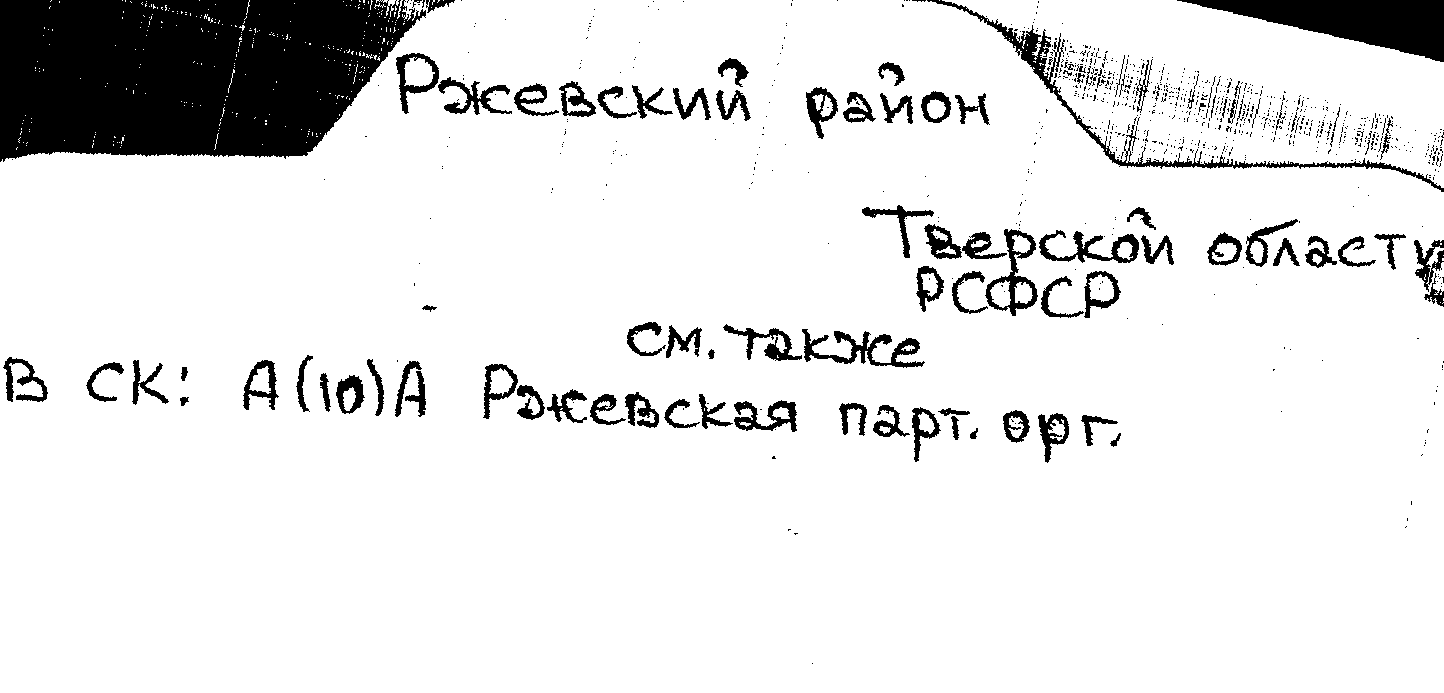 Ржевский район
Тверской области
РСФСР
см. также
В СК: А(10)А Ржевская парт. орг.